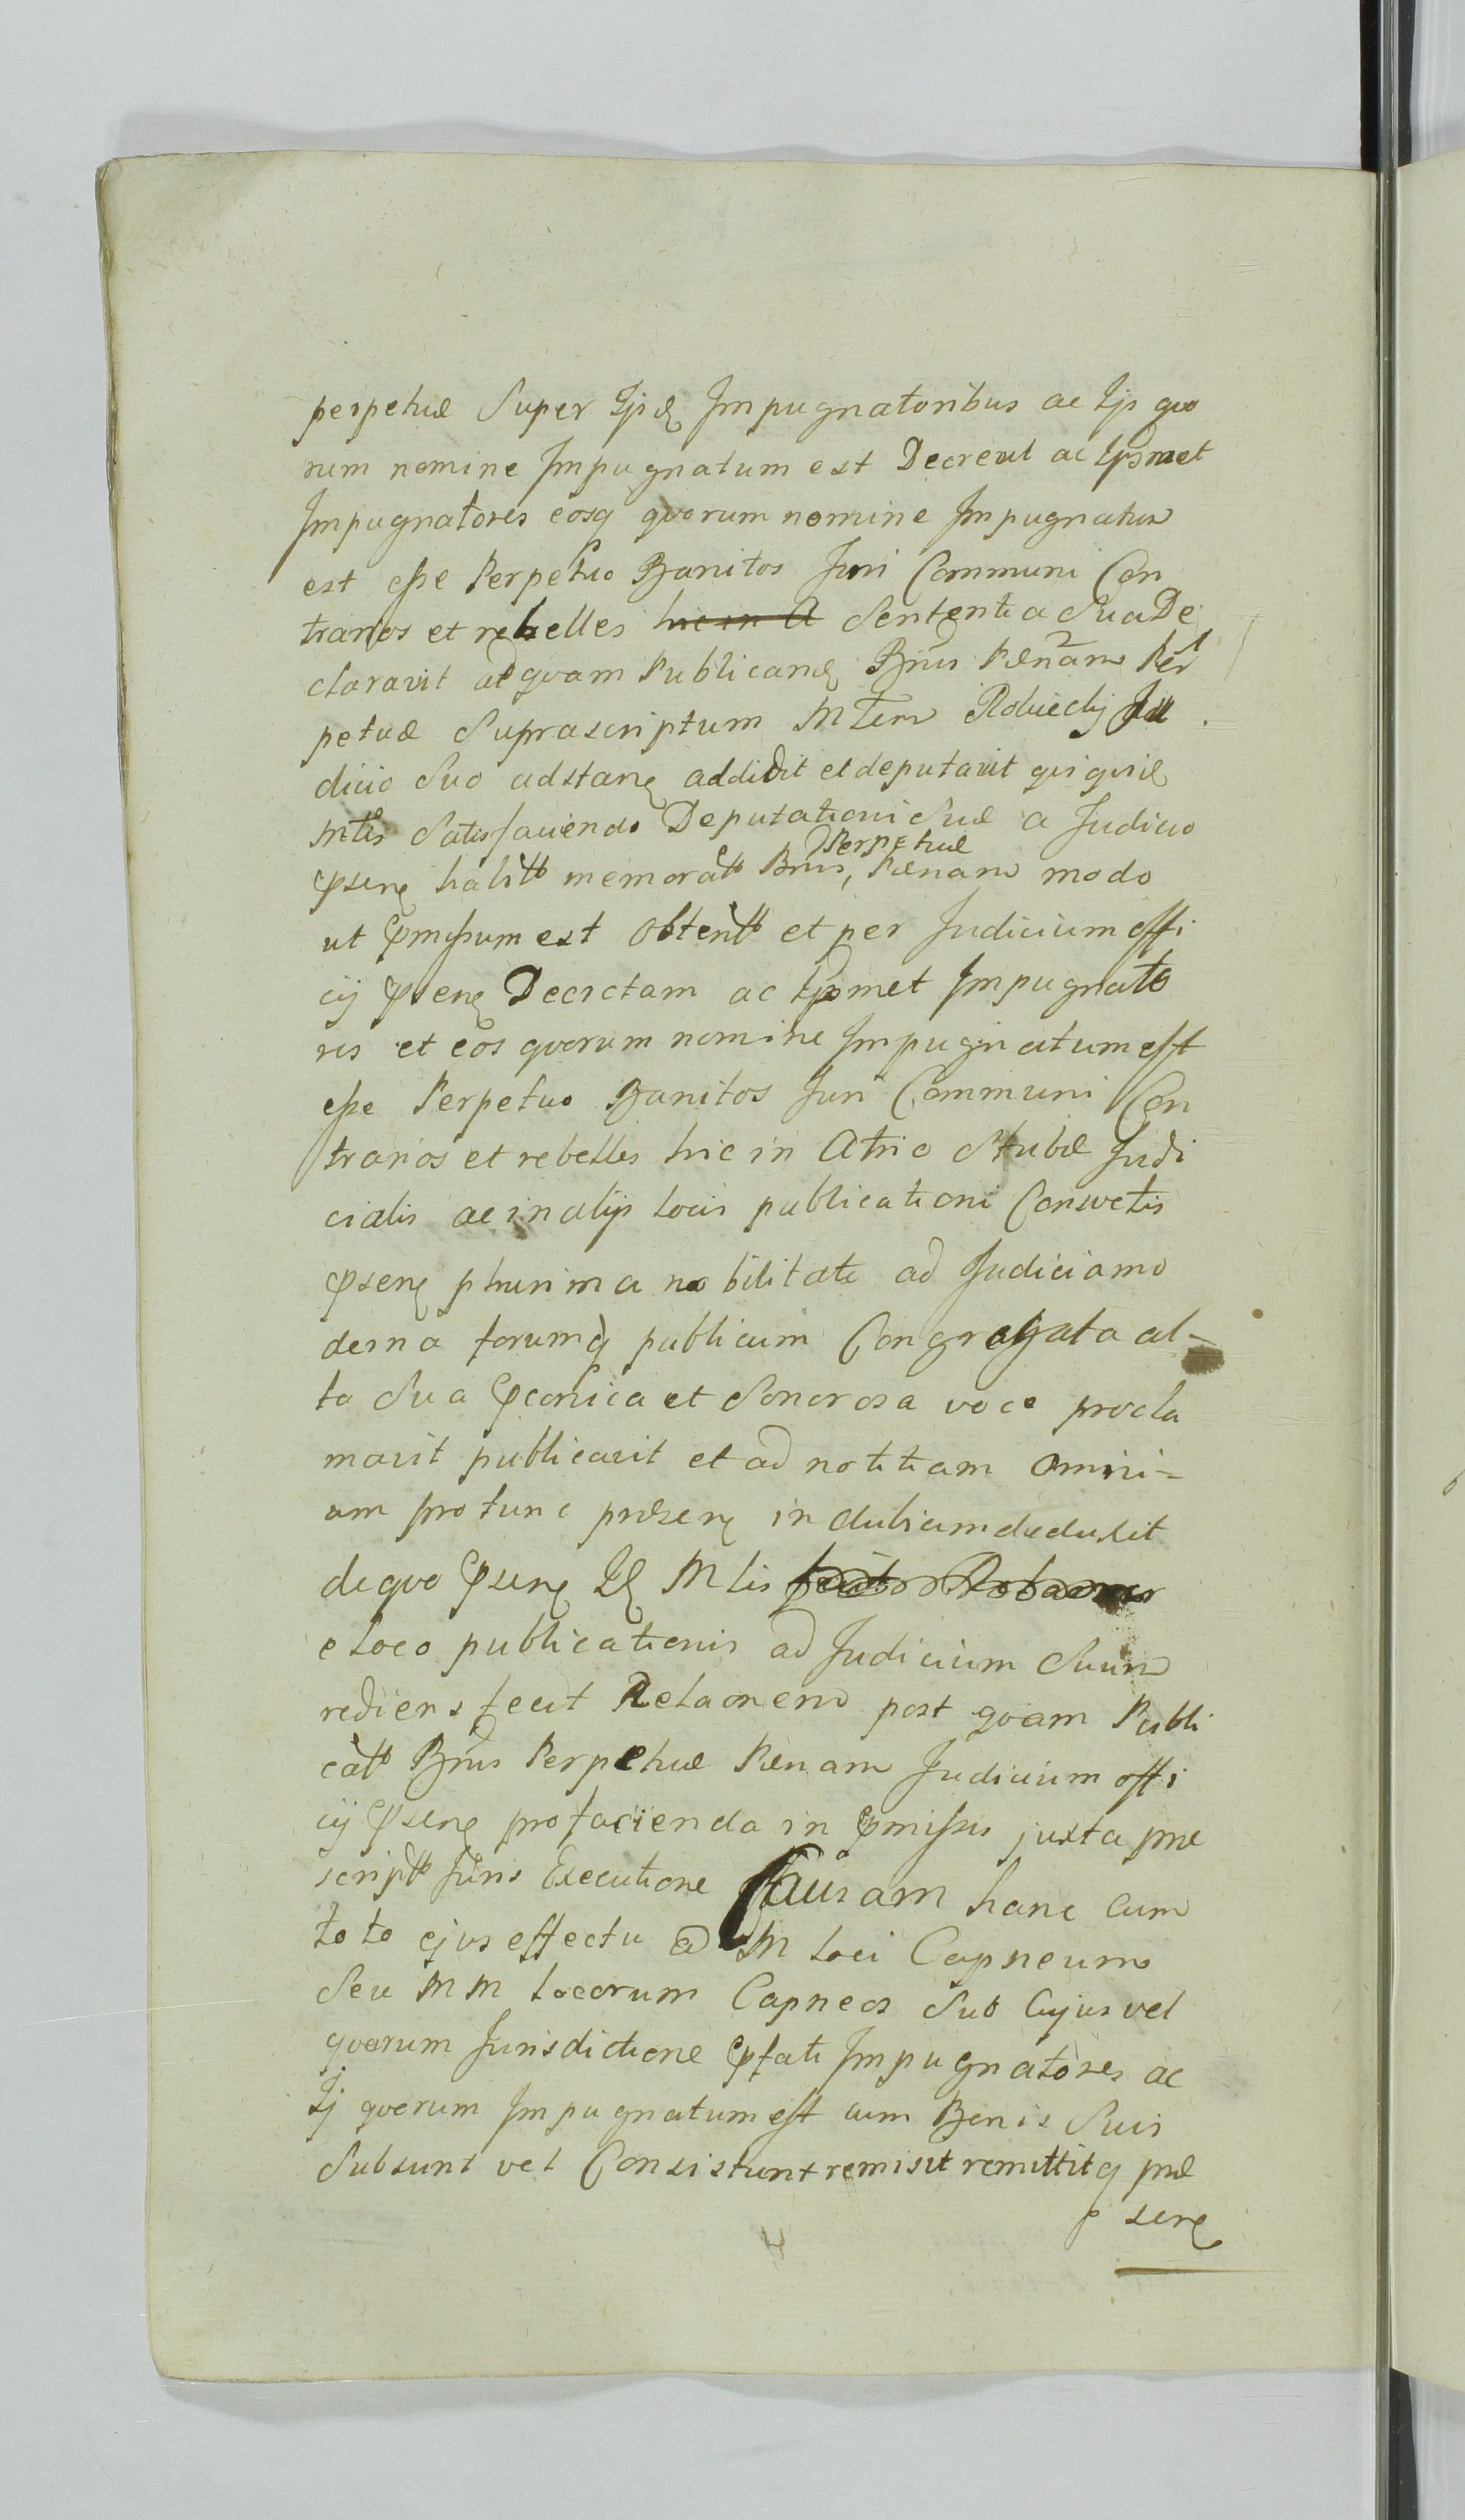 perpetuæ Super Ijsdē Impugnatoribus ac Ijs quo
rum nomine Impugnatum est Decrevit ac Ipsosmet
Impugnatores eosq quorum nomine Impugnatum
est esse Perpetuo Banitos Juri Communi Con
trarios et rebelles hic in A Sententia Sua De
claravit ad quam Publicandā Bnīs Pænam Per
petuæ Suprascriptum Mtem Rdwiecky Ju
dicio Suo adstanē addidit et deputavit qui quidē
Mtīs Satisfaciendo Deputationi Suæ a Judicio
psene habitæ memoratā Bnīs, Perpetuæ Pænam modo
ut pmissum est Obtentā et per Judicium offi
cij psene Decretam ac Ipsosmet Impugnato
res et eos quorum nomine Impugnatum est
esse Perpetuo Banitos Juri Communi Con
trarios et rebelles hic in Atrio Stubæ Judi
cialis ac in alijs locis publicationi Consvetis
psene plurima nobilitate ad Judicia mo
derna forumq publicum Congregata al-
ta Sua pconica et Sonorosa voce procla
mavit publicavit et ad notitiam omni=
um pro tunc præsenē indubiam deduxit
de quo psene Id Mtis
e Loco publicationis ad Judicium Suum
rediens fecit Relaonem post quam Publi
catā Bnīs Perpetuæ Pænam Judicium offi
cij psene pro facienda in pmissis juxta præ
scriptā Juris Executione Causam hanc cum
toto ejus effectu ad M loci Capneum
Seu MM locorum Capneos Sub Cujus vel
quorum Jurisdictione pfati Impugnatores ac
Ij quorum Impugnatum est cum Bonis Suis
Subsunt vel Consistunt remisit remittitq præ
sene